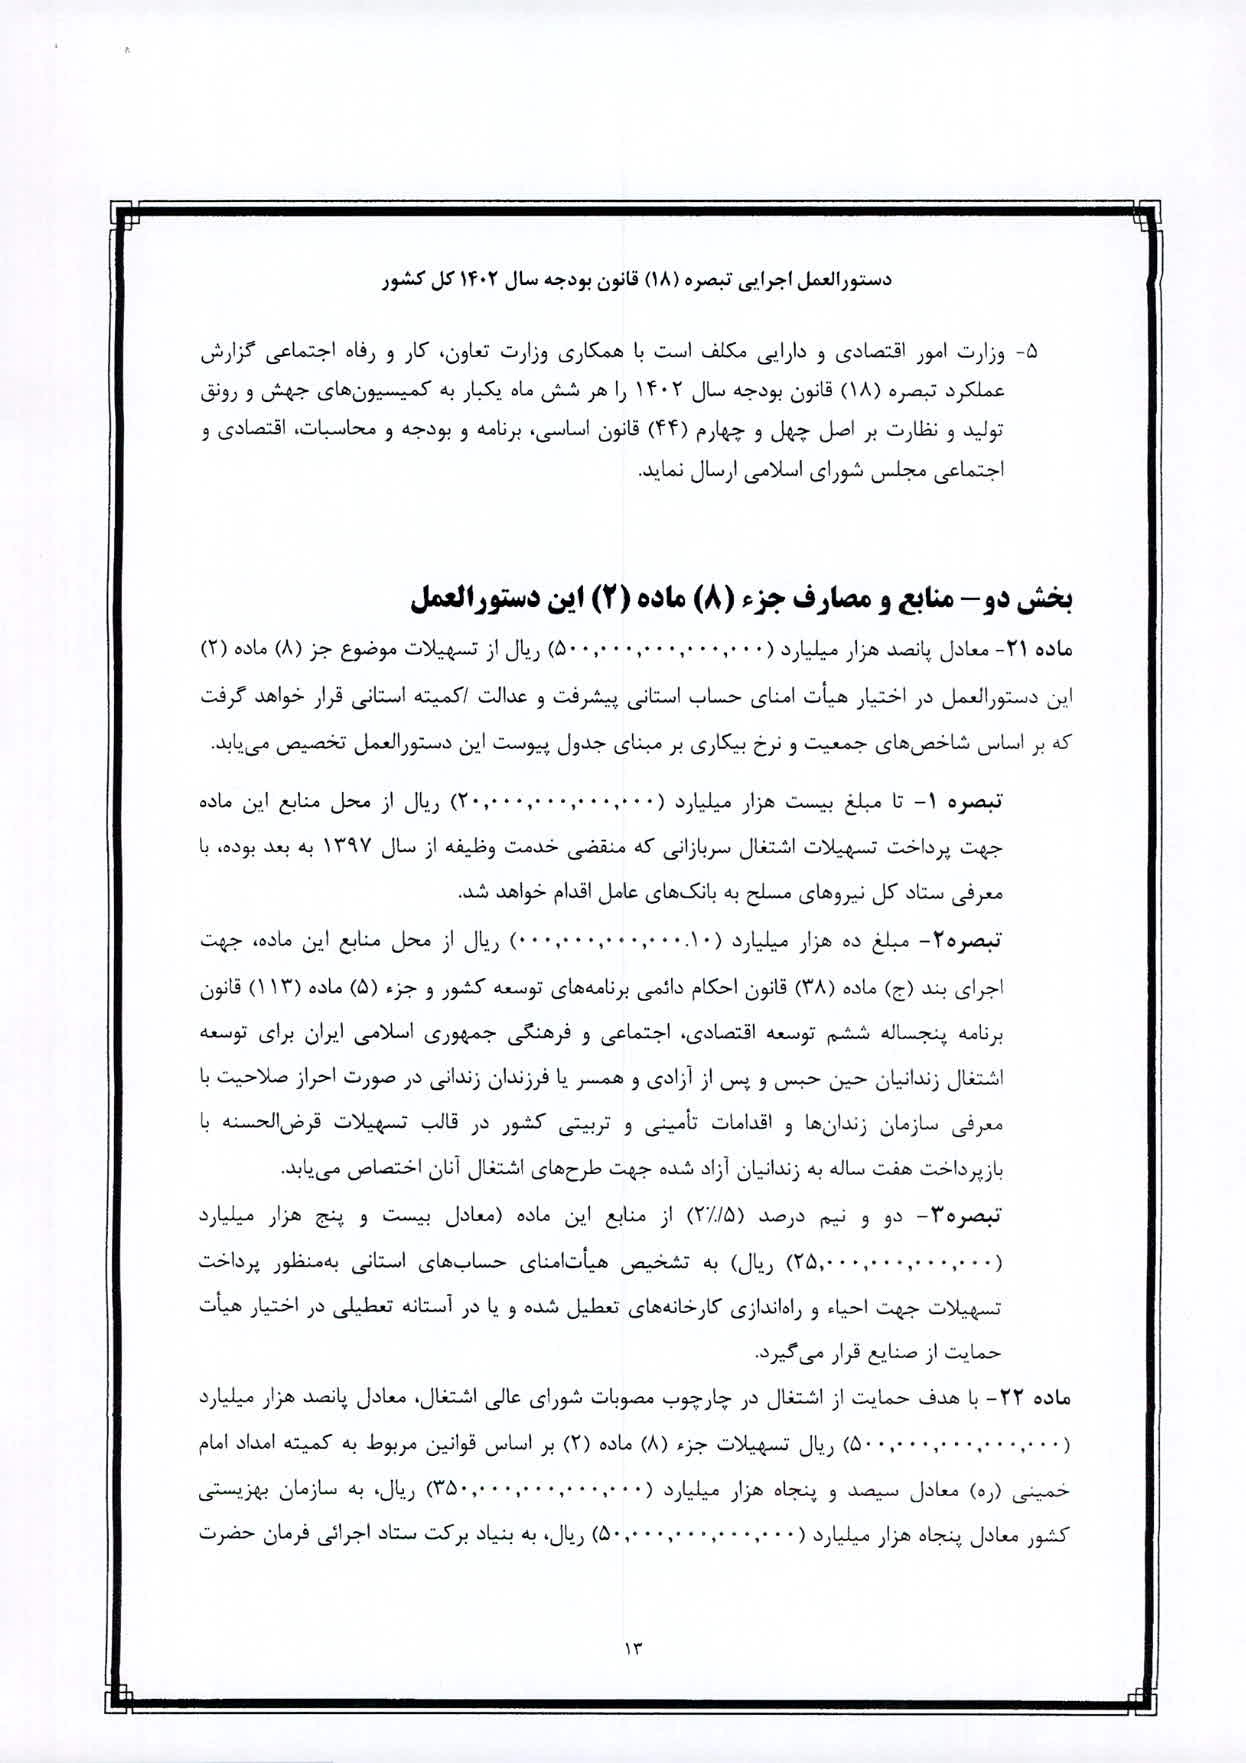 دستورالعمل اجرایی تبصره (۱۸) قانون بودجه سال ۱۴۰۲ کل کشور
۵- وزارت امور اقتصادی و دارایی مکلف است با همکاری وزارت تعاون، کار و رفاه اجتماعی گزارش
عملکرد تبصره (۱۸) قانون بودجه سال ۱۴۰۲ را هر شش ماه یکبار به کمیسیون‌های جهش و رونق
تولید و نظارت بر اصل چهل و چهارم (۴۴) قانون اساسی، برنامه و بودجه و محاسبات، اقتصادی و
اجتماعی مجلس شورای اسلامی ارسال نماید.
بخش دو– منابع و مصارف جزء (۸) ماده (۲) این دستورالعمل
ماده ۲۱- معادل پانصد هزار میلیارد (۵۰۰,۰۰۰,۰۰۰,۰۰۰,۰۰۰) ریال از تسهیلات موضوع جز (۸) ماده (۲)
این دستورالعمل در اختیار هیأت امنای حساب استانی پیشرفت و عدالت /کمیته استانی قرار خواهد گرفت
که بر اساس شاخص‌های جمعیت و نرخ بیکاری بر مبنای جدول پیوست این دستورالعمل تخصیص می‌یابد.
تبصره ۱- تا مبلغ بیست هزار میلیارد (۲۰,۰۰۰,۰۰۰,۰۰۰,۰۰۰) ریال از محل منابع این ماده
جهت پرداخت تسهیلات اشتغال سربازانی که منقضی خدمت وظیفه از سال ۱۳۹۷ به بعد بوده، با
معرفی ستاد کل نیروهای مسلح به بانک‌های عامل اقدام خواهد شد.
تبصره۲- مبلغ ده هزار میلیارد (۱۰.۰۰۰,۰۰۰,۰۰۰,۰۰۰) ریال از محل منابع این ماده، جهت
اجرای بند (ج) ماده (۳۸) قانون احکام دائمی برنامه‌های توسعه کشور و جزء (۵) ماده (۱۱۳) قانون
برنامه پنجساله ششم توسعه اقتصادی، اجتماعی و فرهنگی جمهوری اسلامی ایران برای توسعه
اشتغال زندانیان حین حبس و پس از آزادی و همسر یا فرزندان زندانی در صورت احراز صلاحیت با
معرفی سازمان زندان‌ها و اقدامات تأمینی و تربیتی کشور در قالب تسهیلات قرض‌الحسنه با
بازپرداخت هفت ساله به زندانیان آزاد شده جهت طرح‌های اشتغال آنان اختصاص می‌یابد.
تبصره۳- دو و نیم درصد (۲/۵٪) از منابع این ماده (معادل بیست و پنج هزار میلیارد
(۲۵,۰۰۰,۰۰۰,۰۰۰,۰۰۰) ریال) به تشخیص هیأت‌امنای حساب‌های استانی به‌منظور پرداخت
تسهیلات جهت احیاء و راه‌اندازی کارخانه‌های تعطیل شده و یا در آستانه تعطیلی در اختیار هیأت
حمایت از صنایع قرار می‌گیرد.
ماده ۲۲- با هدف حمایت از اشتغال در چارچوب مصوبات شورای عالی اشتغال، معادل پانصد هزار میلیارد
(۵۰۰,۰۰۰,۰۰۰,۰۰۰,۰۰۰) ریال تسهیلات جزء (۸) ماده (۲) بر اساس قوانین مربوط به کمیته امداد امام
خمینی (ره) معادل سیصد و پنجاه هزار میلیارد (۳۵۰,۰۰۰,۰۰۰,۰۰۰,۰۰۰) ریال، به سازمان بهزیستی
کشور معادل پنجاه هزار میلیارد (۵۰,۰۰۰,۰۰۰,۰۰۰,۰۰۰) ریال، به بنیاد برکت ستاد اجرائی فرمان حضرت
۱۳